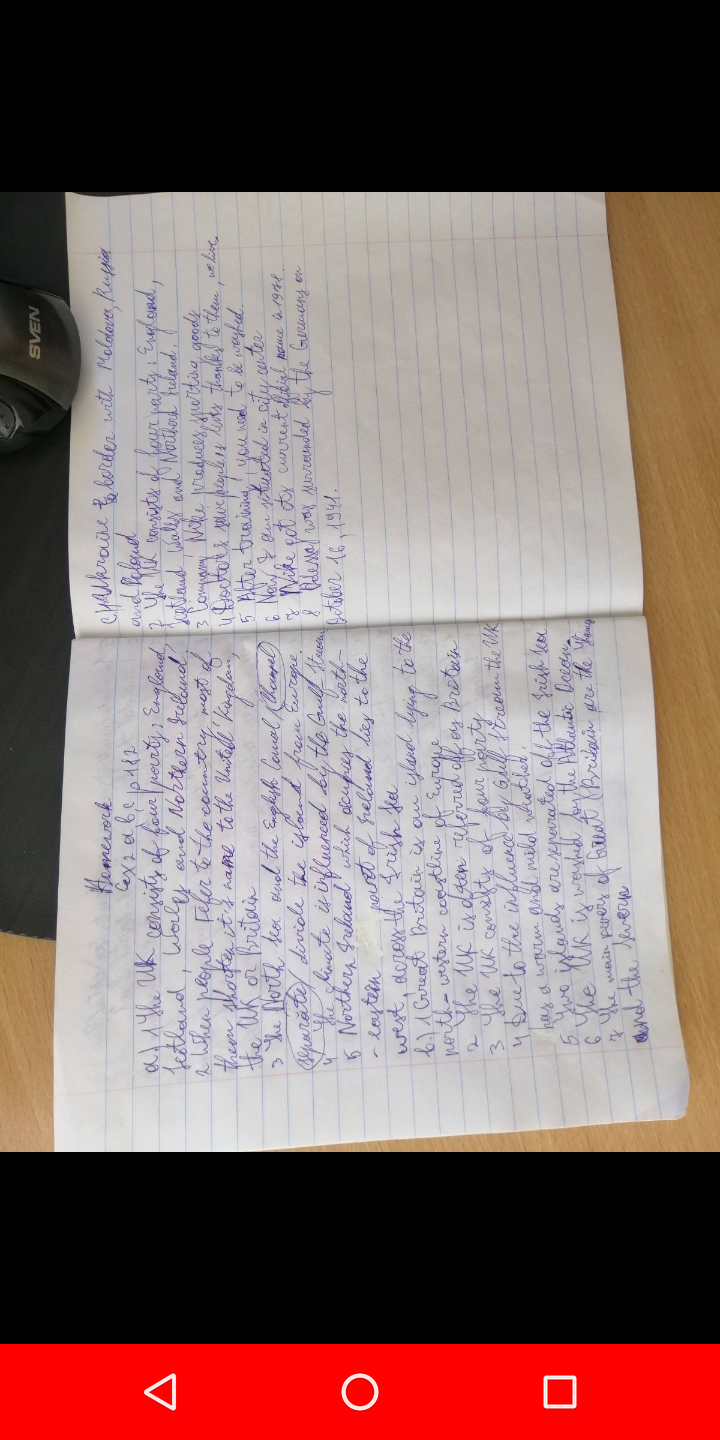 SVEN
Homework
Ex 2 a b c p 182
a) 1 The UK consists of four parts: England
Scotland, Wales and Northern Ireland
2 When people refer to the country, most of
them shorten it's name to the United Kingdom,
the UK or Britain
3 The North Sea and the English Canal (Channel)
(separate) divide the island from Europe.
4 The climate is influenced by the Gulf Stream
5 Northern Ireland which occupies the north-
-eastern part of Ireland lies to the
west, across the Irish Sea
b) 1 Great Britain is an island lying to the
north-western coastline of Europe
2 The UK is often referred off as Britain
3 The UK consits of four parts
4 Due to the influence by Gulf Stream the UK
has a warm and mild weather.
5 Two islands are separated off the Irish Sea
6 The UK is washed by the Atlantic Ocean.
7 The main rivers of Great Britain are the
and the Severn
c) 1 Ukraine border with Moldova, Russia
and Poland
2 The UK consists of four parts: England,
Scotland, Wales and Northern Ireland.
3 Company Nike produces sporting goods
4 Doctors save peoples lives thanks to them, we live
5 After training you need to be washed.
6 Now I am situated in city center
7 Nike got its current official name in 1978.
8 Odessa was surrounded by the Germans on
October 16, 1941.